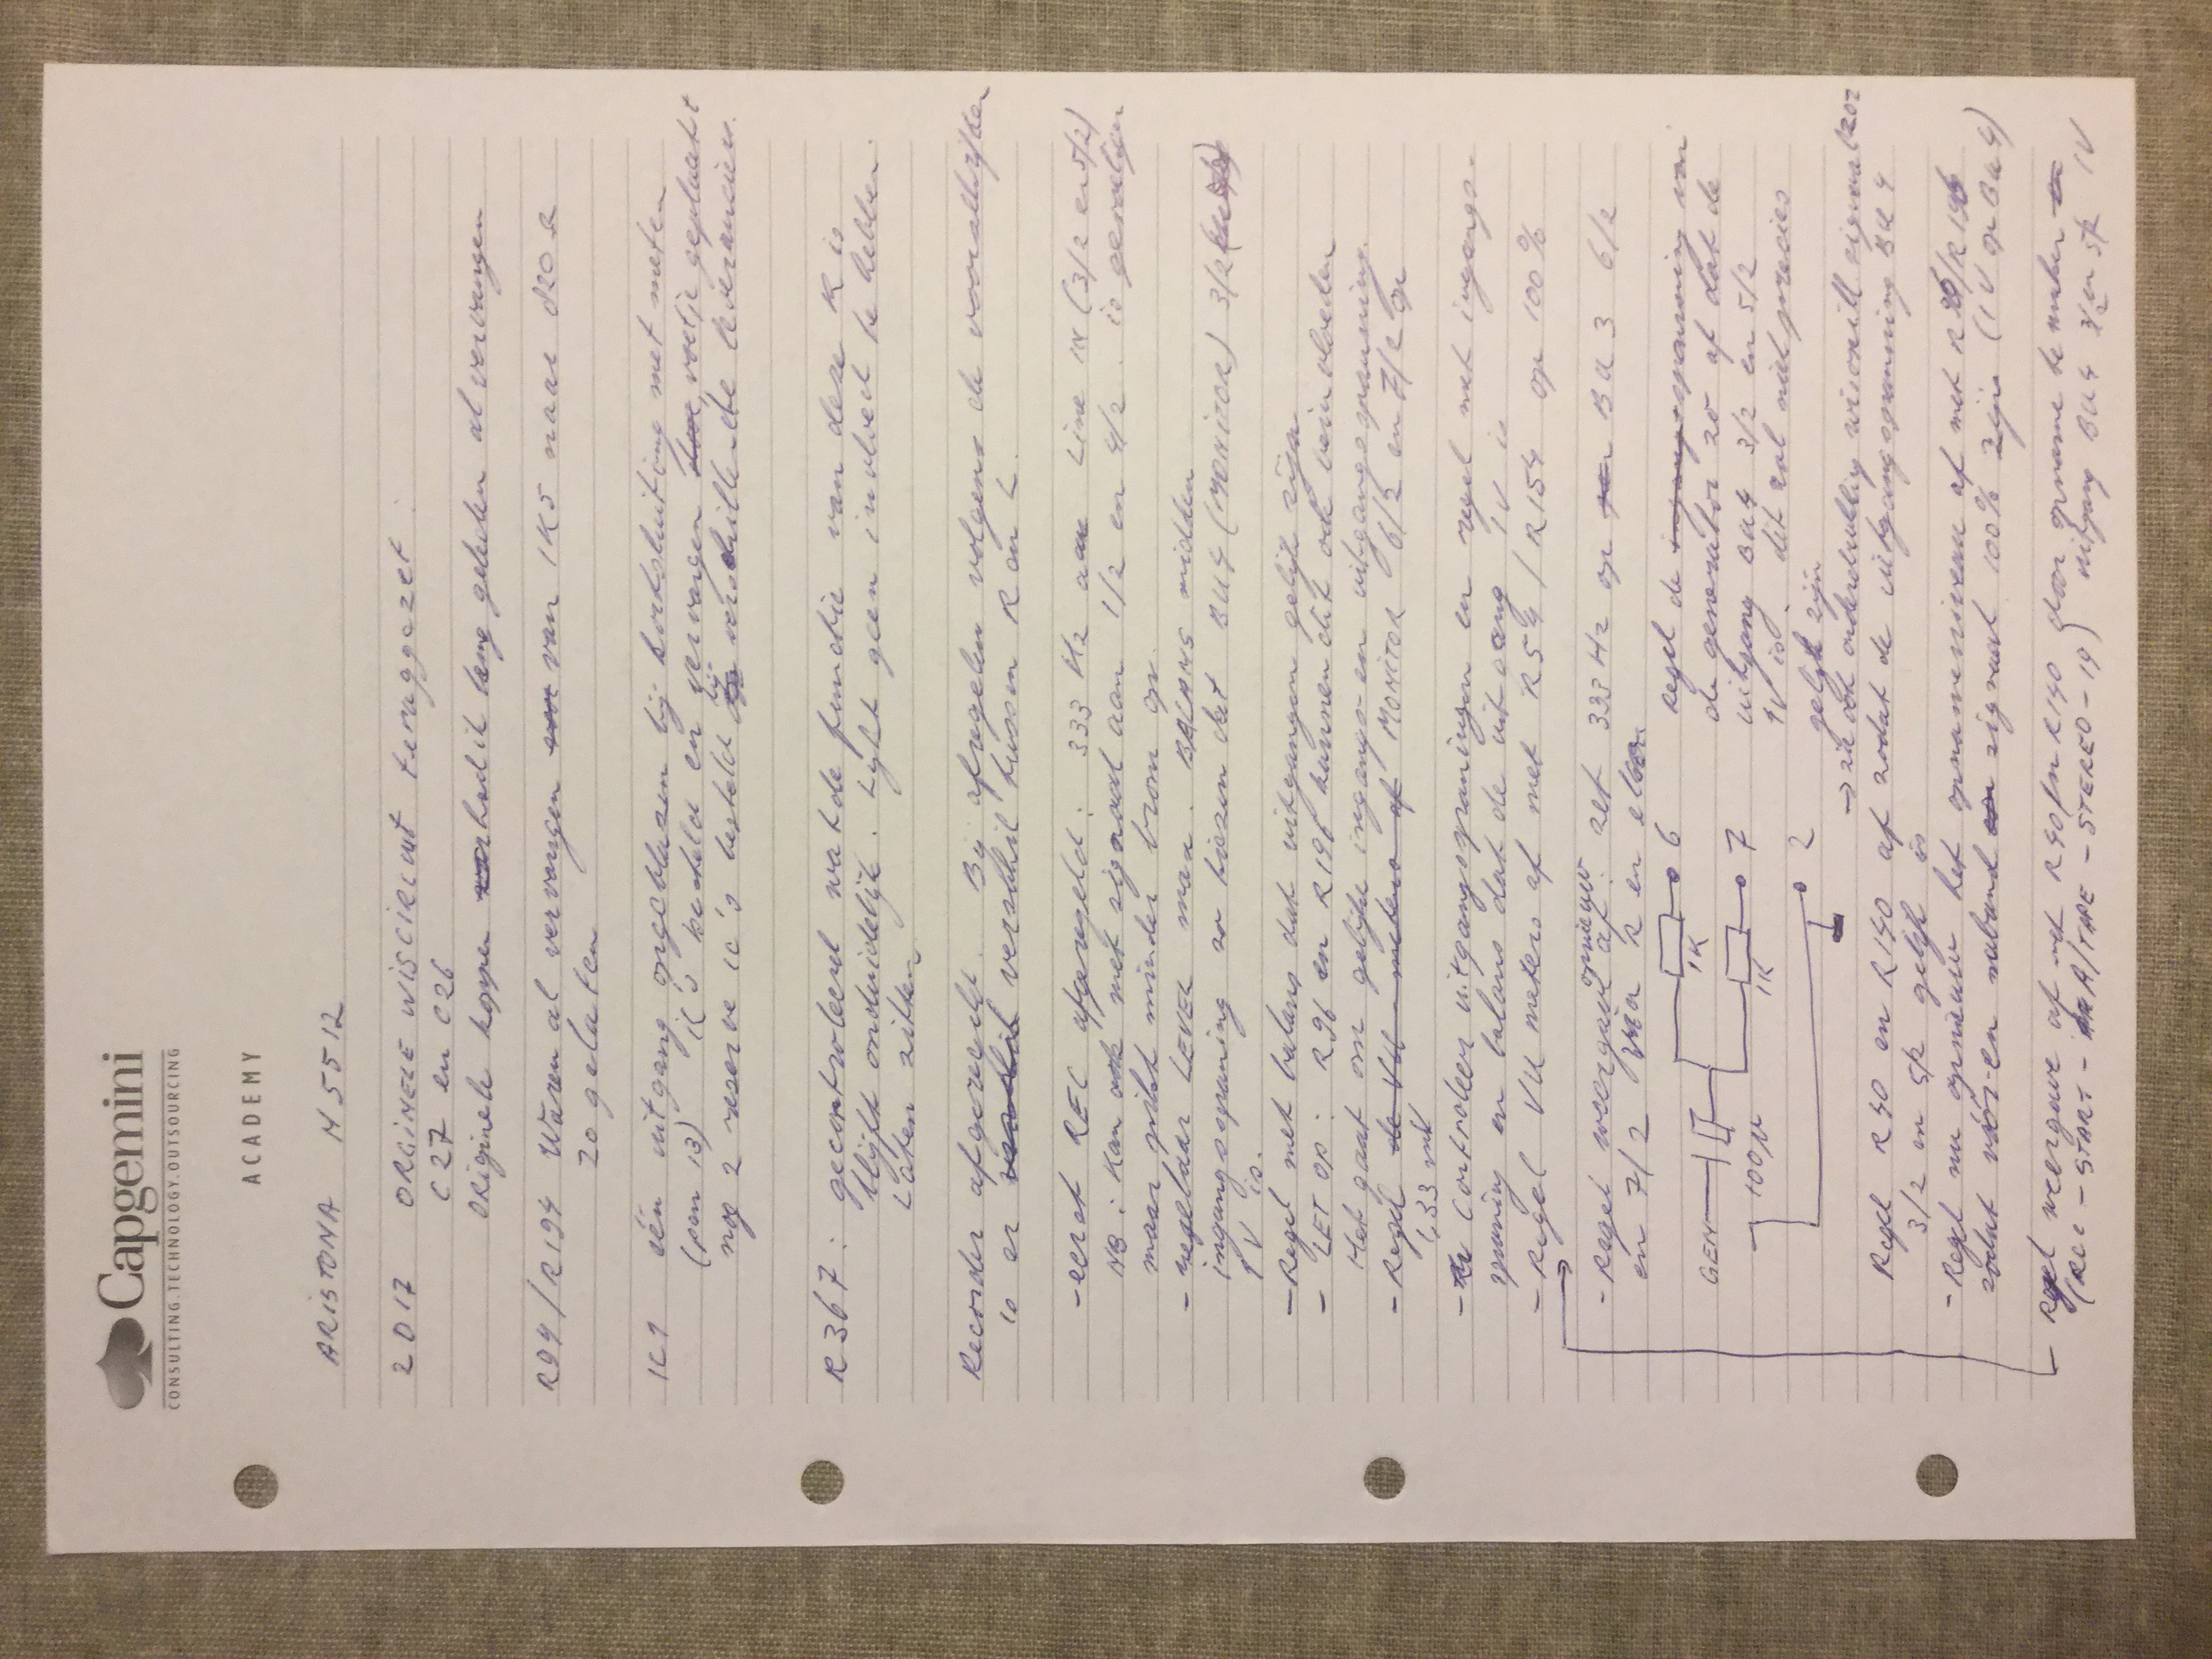 Capgemini
CONSULTING.TECHNOLOGY.OUTSOURCING
ACADEMY
ARISTONA M5512
2017 ORGINELE WISCIRCUIT teruggezet:
C27 en C26
originele kopjes lang geleden al vervangen
R94/R194 waren al vervangen van 1K5 naar 820Ω
zo gelaten
IC1 één uitgang opgeblazen bij kortsluiting met meten
(pen 13) IC's besteld en vervangen, voetje geplaatst
nog 2 reserve IC's besteld bij verschillende leveranciers.
R367: gecontroleerd wat de functie van deze R is
blijft onduidelijk. Lijkt geen invloed te hebben.
Laten zitten
Recorder afgeregeld. Bij afregelen volgens de voorschriften
is er verschil tussen R en L.
- eerst REC afgeregeld: 333 Hz aan LINE IN (3/2 en 5/2)
NB: Kan ook met signaal aan 1/2 en 4/2. is gevoeliger
maar pikt minder brom op.
- regelaar LEVEL max. BALANS midden
ingangsspanning zo kiezen dat BU4 (MONITOR) 3/2
1V is.
- Regel met balans dat uitgangen gelijk zijn
- LET OP: R96 en R196 kunnen dit ook beinvloeden
Het gaat om gelijke ingangs- en uitgangsspanning.
- Regel de VU-meters af MONITOR 6/2 en 7/2 op
1,33 mV
- Controleer uitgangsspanningen en regel met ingangs-
spanning en balans dat de uitgang 1V is
- Regel VU meters af met R54/R154 op 100%
- Regel weergave opnieuw af: zet 333 Hz op BU3 6/2
en 7/2 via R en elco.
Regel de spanning van
de generator zo af dat de
uitgang BU4 3/2 en 5/2
1V is. dit zal niet precies
gelijk zijn
GEN
100µ
1K
6
1K
7
2
→ zit ook onderdrukking verschil signaal
Regel R40 en R140 af zodat de uitgangsspanning BU4
3/2 en 5/2 gelijk is
- Regel nu opnieuw het opnameniveau af met R96/R196
zodat vóór- en naband signaal 100% zijn (1V op BU4)
- Regel weergave af met R40/R140 door opname te maken
(REC - START - A/TAPE - STEREO - 19) uitgang BU4 3/2 en 5/2 1V